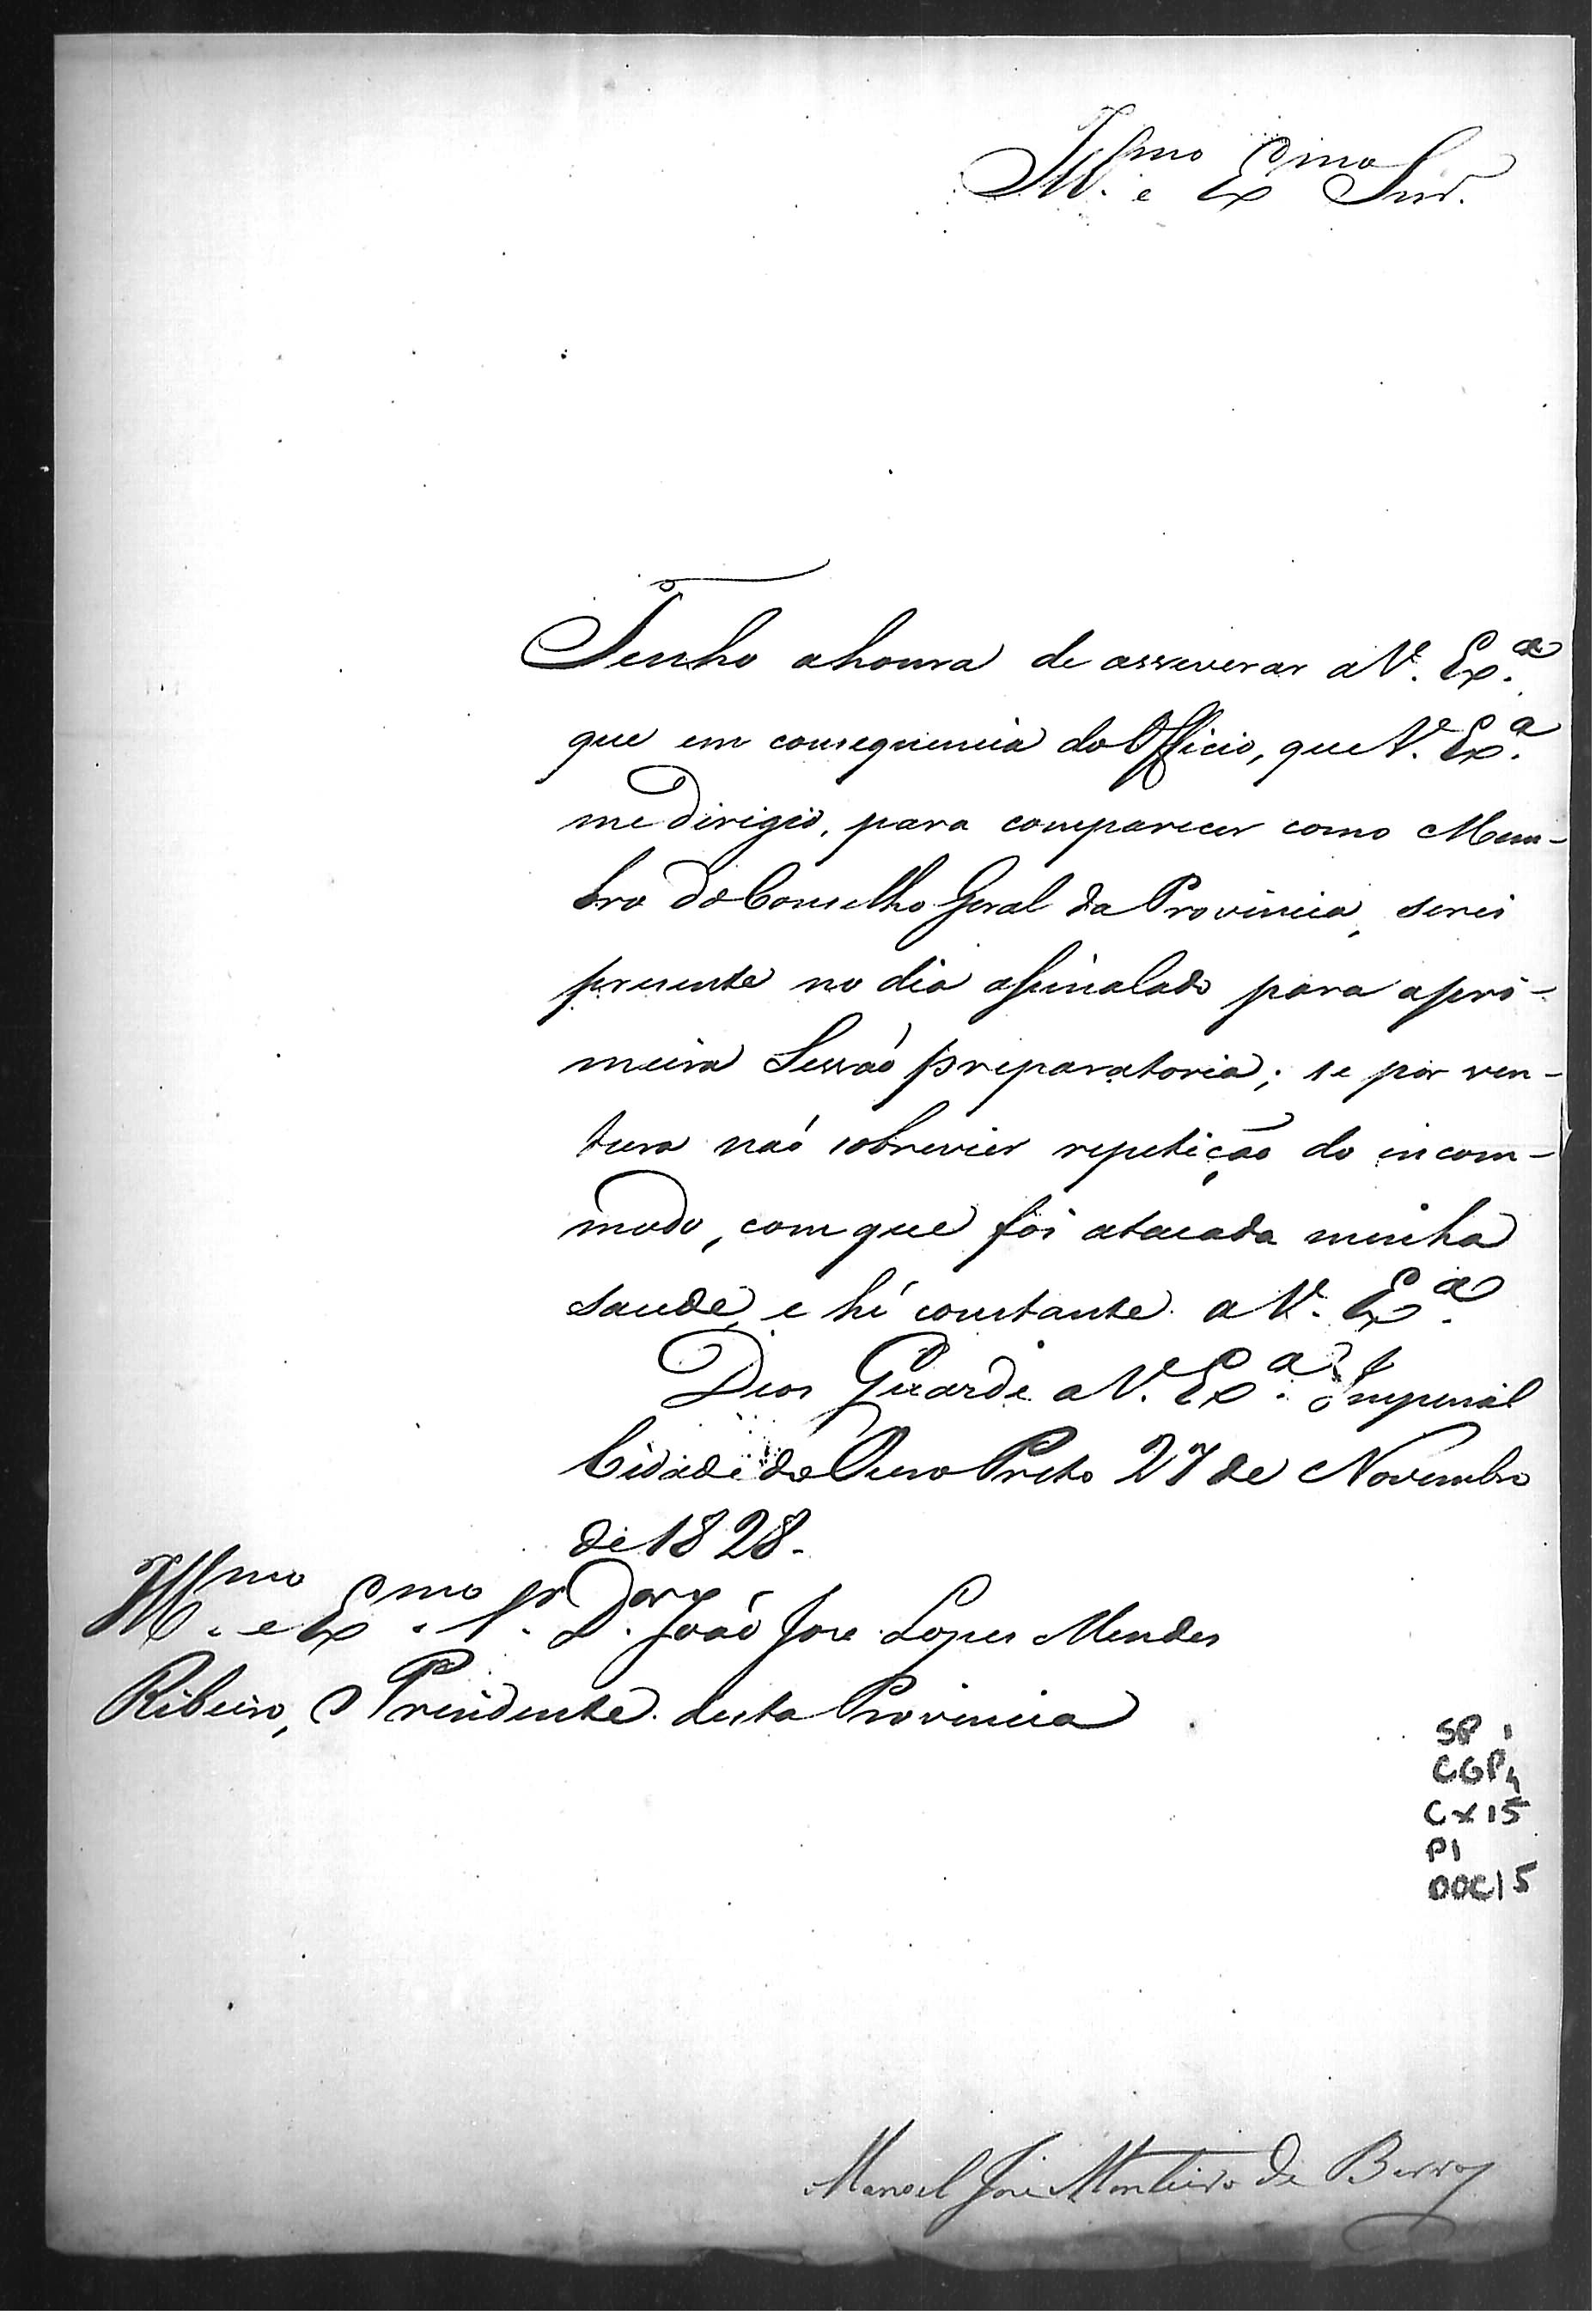 Ill.mo e Ex.mo Snr.
Tenho a honra de asseverar a V. Ex.a
que em consequencia do Officio, que V. Ex.a
me dirigio, para comparecer como Mem-
bro do Conselho Geral da Provincia, serei
presente no dia assinalado para a pri-
meira Sessaõ preparatoria; se por ven-
tura naõ sobrevier repetição do incom-
modo, com que foi atacada minha
saude, e hé constante a V. Ex.a
Deos Guarde a V. Ex.a Imperial
Cidade do Ouro Preto 27 de Novembro
de 1828.
Ill.mo e Ex.mo Sr. D.or João Jose Lopes Mendes
Ribeiro, Prezidente desta Provincia
SP 1
CGP4
CX15
P1
DOC15
Manoel José Monteiro de Barros